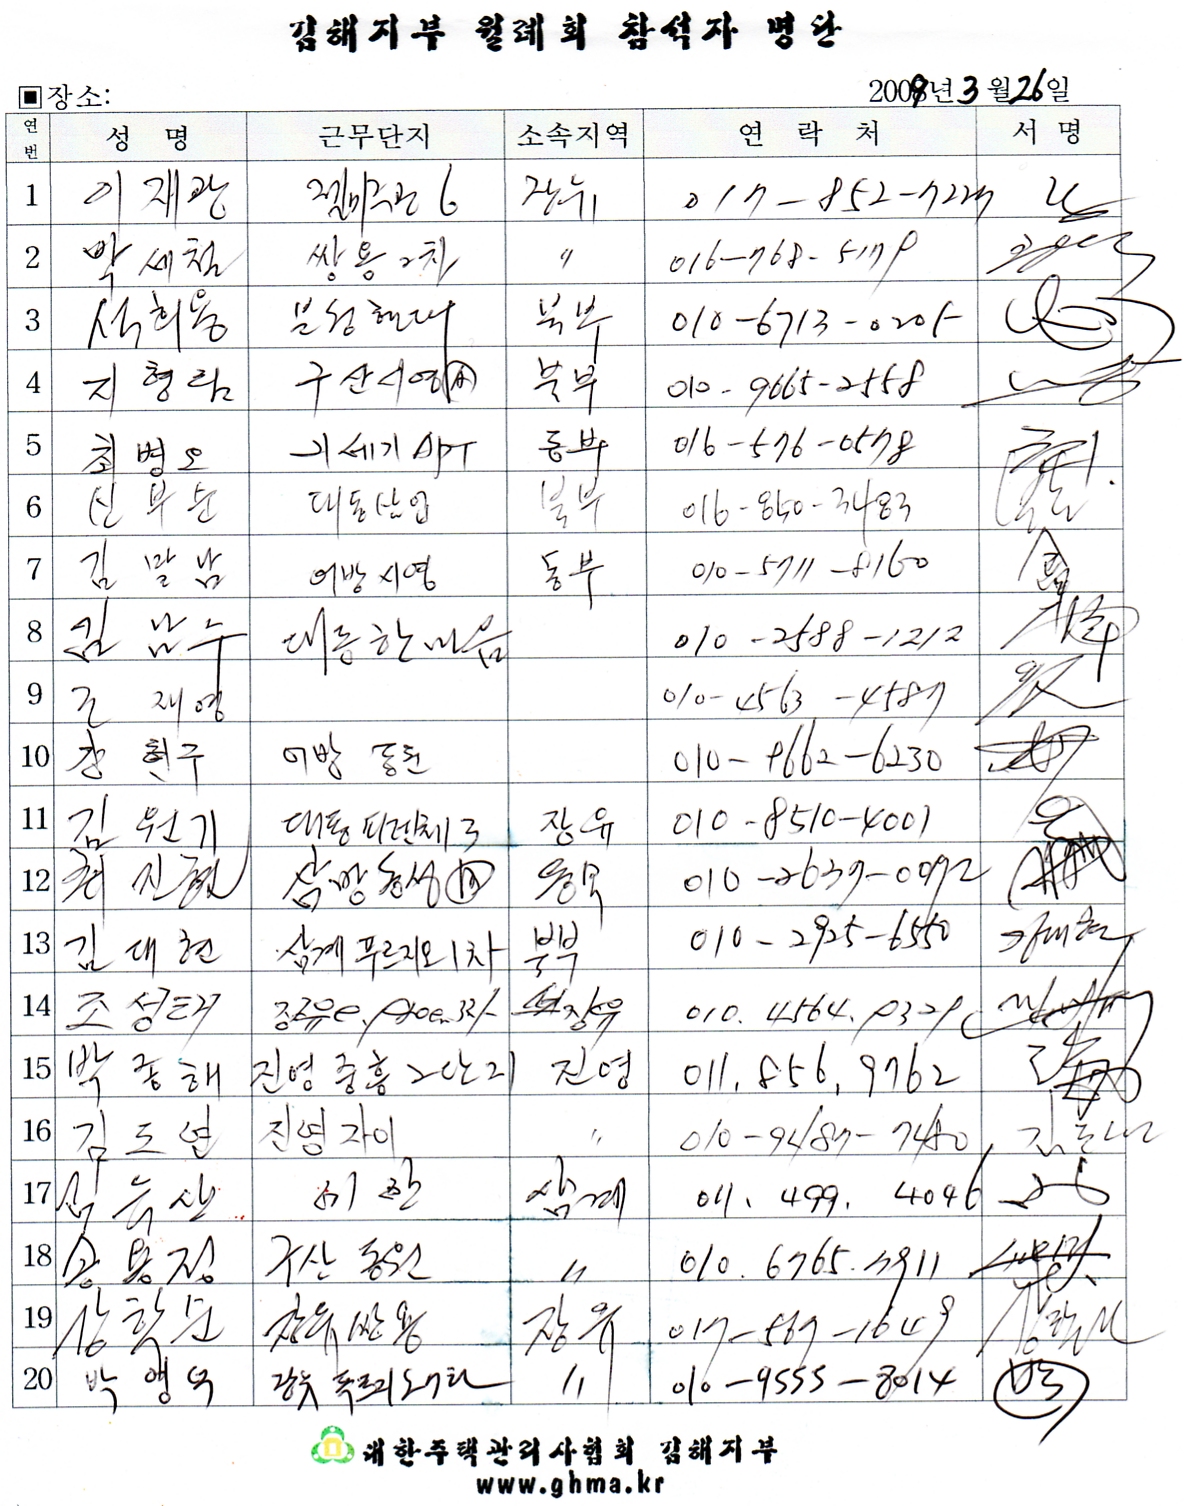 김해지부 월례회 참석자 명단
■장소: 2009년 3월 26일
연번 성 명 근무단지 소속지역 연 락 처 서 명
1 이재광 6 장유 017-852-7227
2 박세철 쌍용2차 〃 016-768-5179
3 석희용 북부 010-6713-0205
4 지형림 구산시영 북부 010-9665-2558
5 최병오 동부 016-576-0578
6 신부순 대동산업 북부 016-850-3483
7 김말남 어방시영 동부 010-5711-8160
8 김남수 대동한마음 010-2588-1212
9 재영 010-4563-4587
10 강현구 어방 동원 010-9662-6230
11 김원기 대동피렌체3 장유 010-8510-4001
12 진 삼방동성 010-2637-0972
13 김대현 삼계푸르지오1차 북부 010-2925-6550 김대현
14 조성태 장유 010.4564.0329
15 박종해 진영중흥2단지 진영 011.856.9762
16 김도연 진영자이 〃 010-9487-7480
17 삼계 011.499.4096
18 공용정 구산동원 〃 010.6765.7911
19 장유쌍용 장유 017-567-1649
20 박영덕 〃 010-9555-8014
대한주택관리사협회 김해지부
www.ghma.kr